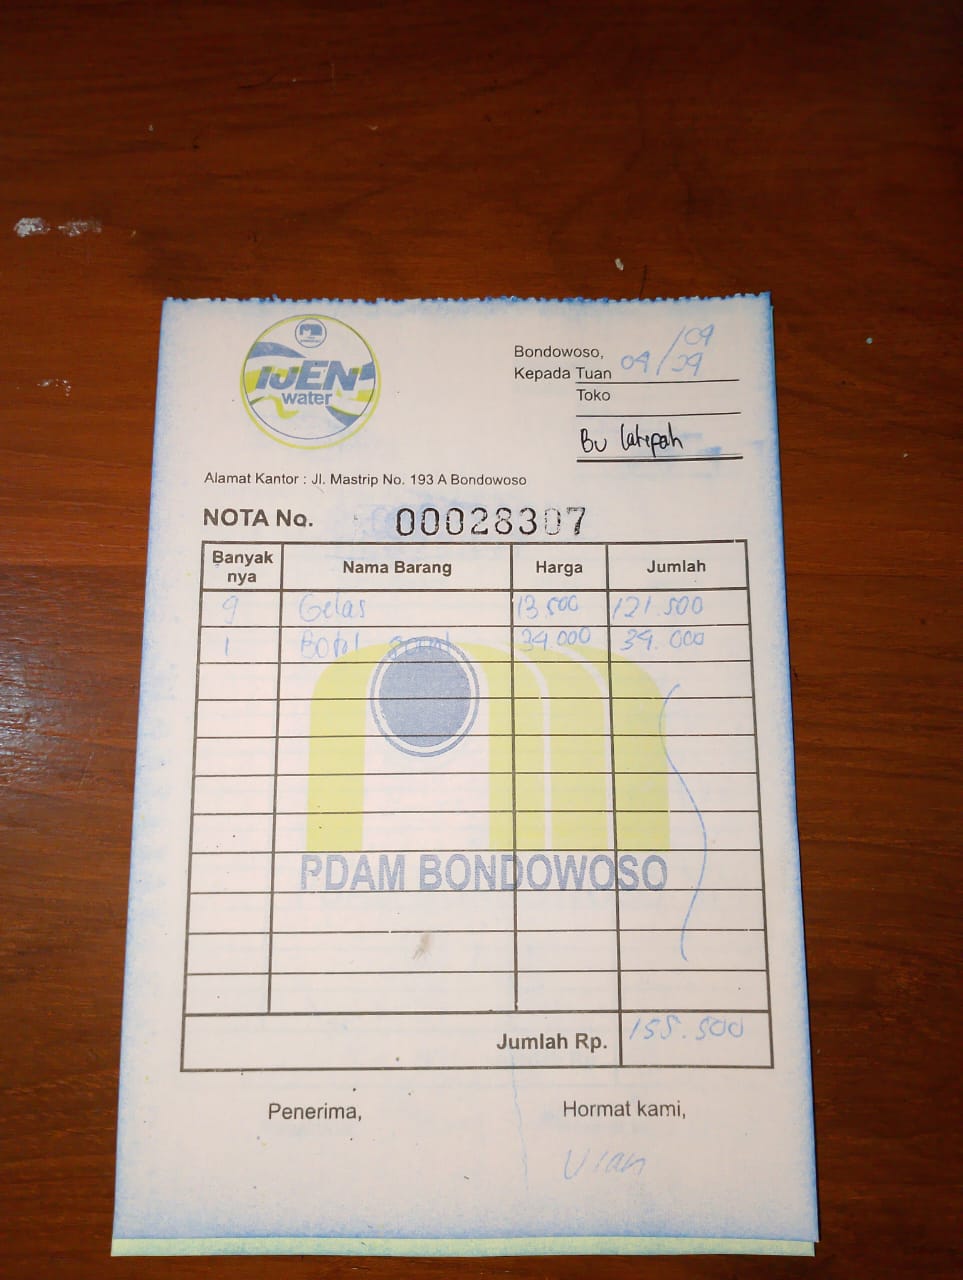 IJEN
water
Bondowoso, 04/09
Kepada Tuan
Toko
Bu Latipah
Alamat Kantor : Jl. Mastrip No. 193 A Bondowoso
NOTA No. 00028307
Banyak nya Nama Barang Harga Jumlah
9 Gelas 13.500 121.500
1 Botol 34.000 34.000
PDAM BONDOWOSO
Jumlah Rp. 155.500
Penerima, Hormat kami,